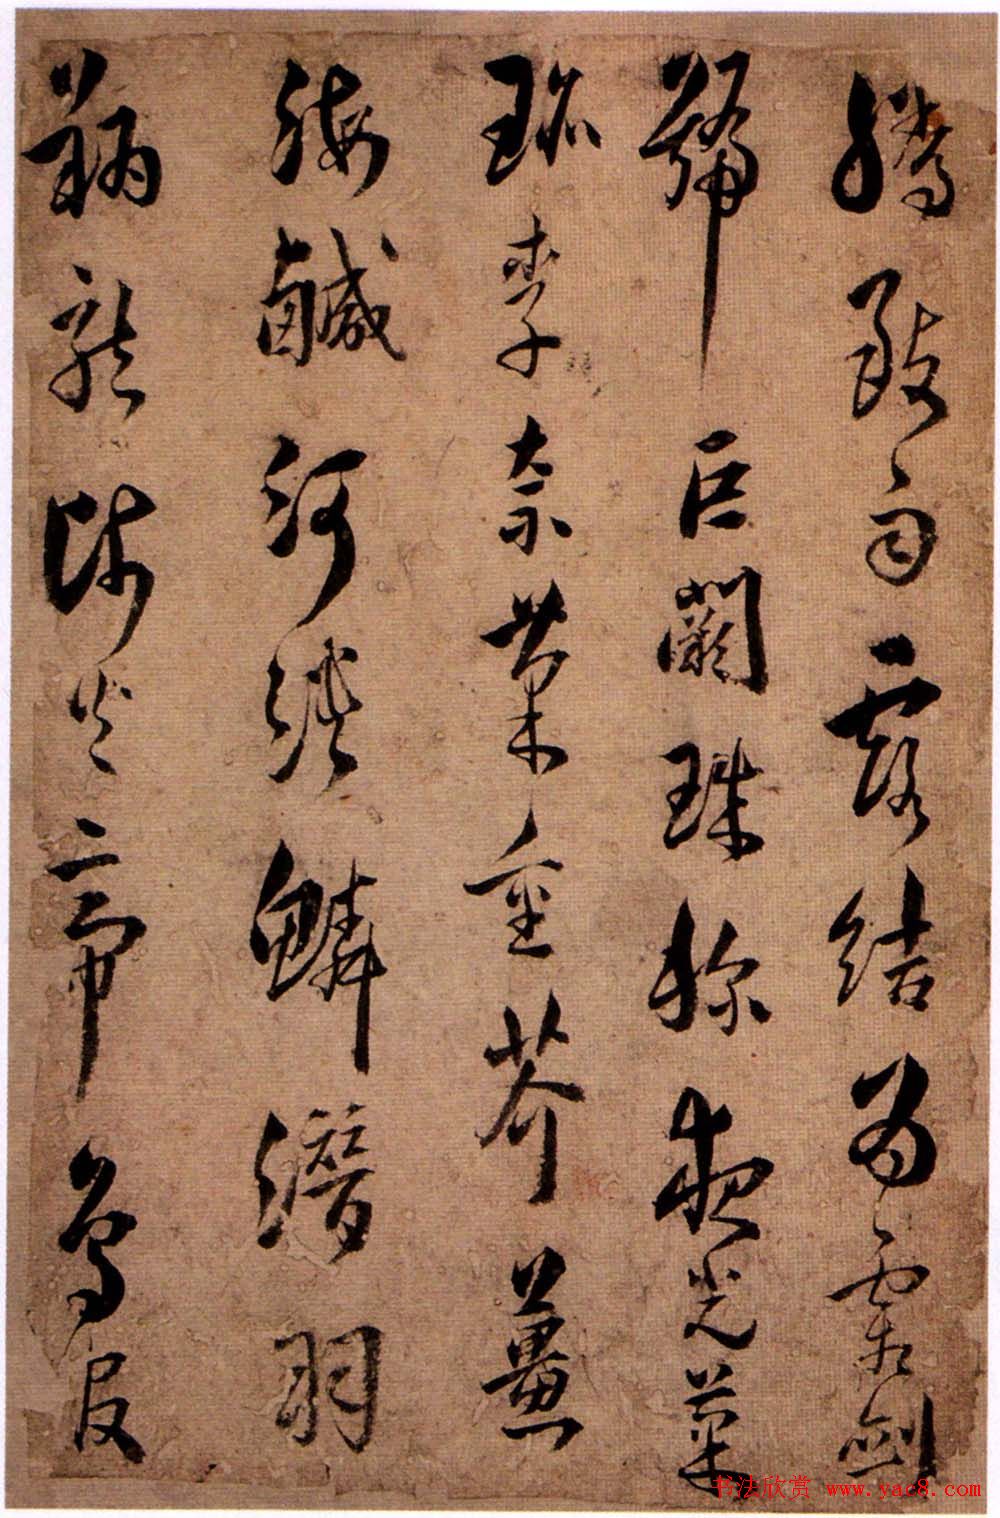 騰致雨露結為霜劍
號巨闕珠稱夜光菓
珎李奈菜重芥薑
海鹹河淡鱗潛羽
翔龍師火帝鳥官
书法欣赏 www.yac8.com